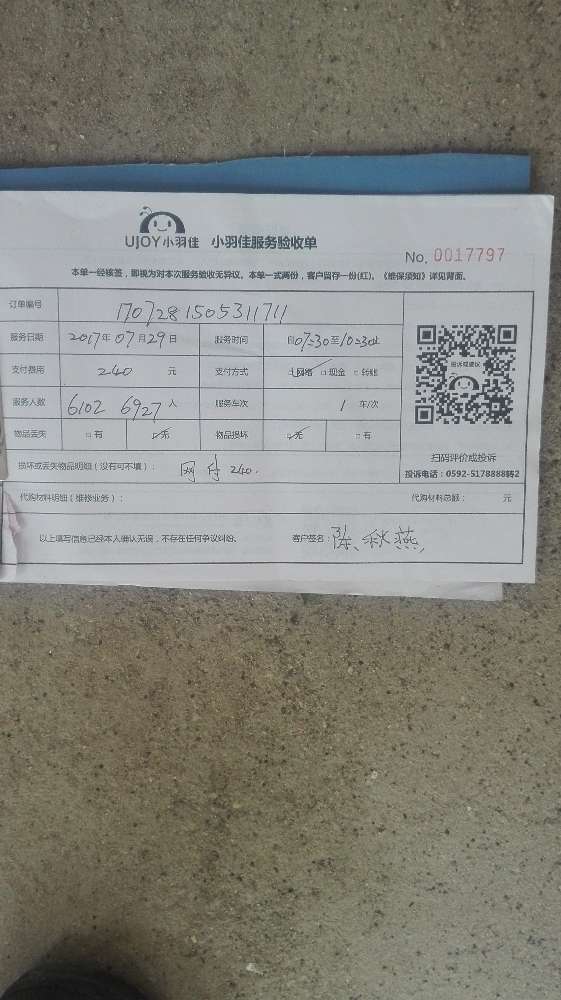 UJOY小羽佳 小羽佳服务验收单
No. 0017797
本单一经核签，即视为对本次服务验收无异议。本单一式两份，客户留存一份(红)。《维保须知》详见背面。
订单编号 1707281505311711
服务日期 2017年07月29日 服务时间 自07:30至10:30止
支付费用 240 元 支付方式 ☑网络 □现金 □转账
服务人数 6102 6927人 服务车次 1 车/次
物品丢失 □有 ☑无 物品损坏 ☑无 □有
投诉或建议
扫码评价或投诉
投诉电话：0592-5178888转2
损坏或丢失物品明细（没有可不填）： 网付240.
代购材料明细（维修业务）： 代购材料总额： 元
以上填写信息已经本人确认无误，不存在任何争议纠纷。 客户签名：陈秋燕